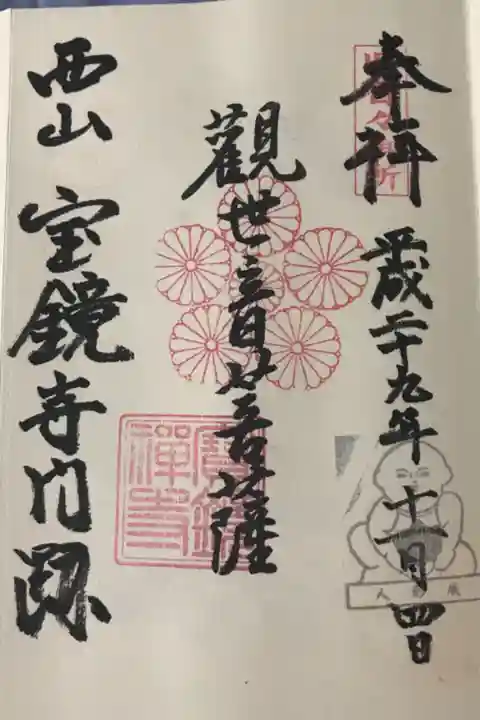 奉拝
平成二十九年十一月四日
觀世音菩薩
西山 宝鏡寺门跡
寳鏡禅寺
人形展